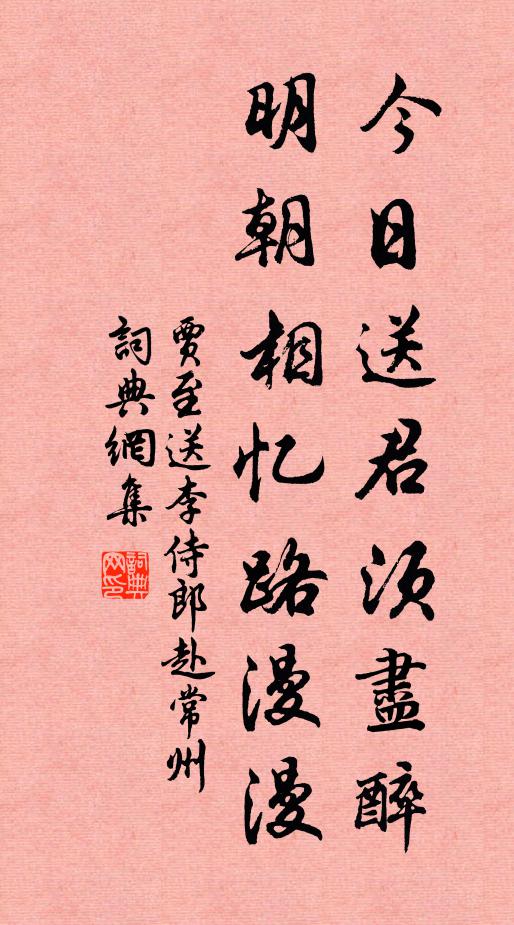 今日送君须盡醉
明朝相忆路漫漫
賈至送李侍郎赴常州
詞典網集
詞典网印